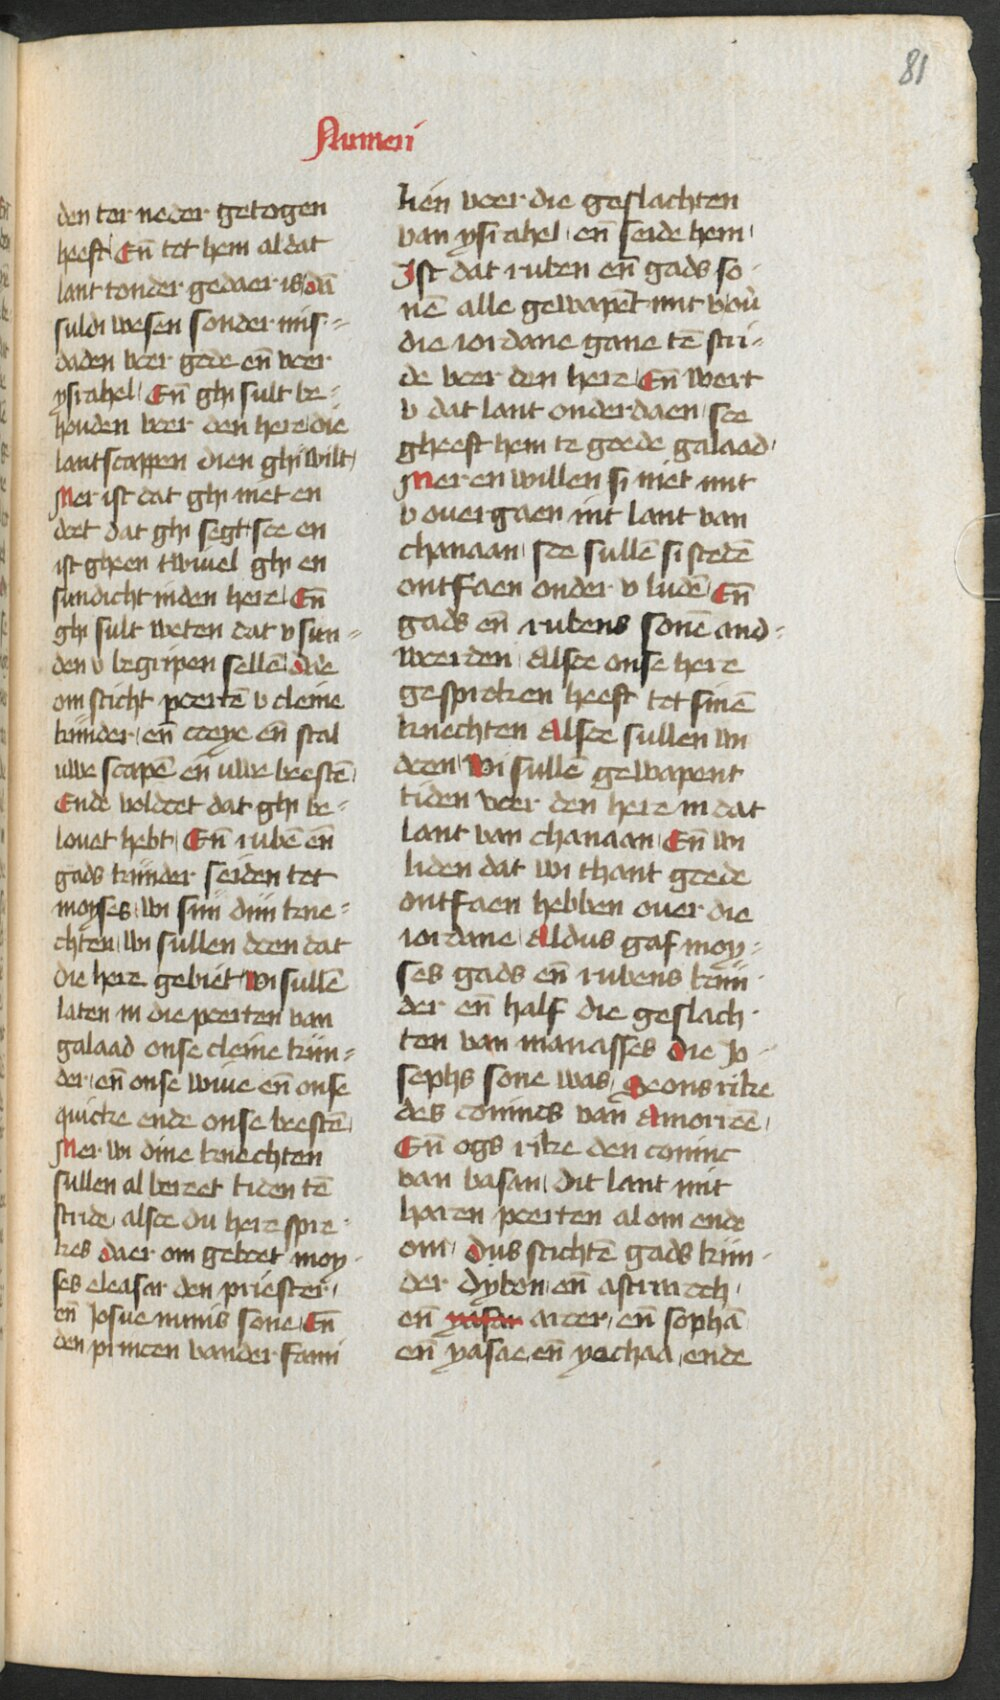 81
Numeri
den ter neder getogen
heeft Eñ tet hem al dat
lant tonder gedaer is dā
suldi wesen sonder mis=
daden veer gode eñ veer
ysrahel Eñ ghi sult be=
houden veer den here die
lantscappen dien ghi wilt
Mer ist dat ghi niet en
doet dat ghi segt soe en
ist gheen twiuel ghi en
sundicht inden here Eñ
ghi sult weten dat v sun=
den v begripen sellē
om sticht poertē v cleine
kinder eñ coeye eñ stal
uwe scapē eñ uwe beestē
Ende voldoet dat ghi be=
louet hebt Eñ rubē eñ
gads kinder seiden tet
moyses wi siin diin kne=
chten wi sullen doen dat
die here gebiet wi sullē
laten in die poerten van
galaad onse cleine kiin=
der eñ onse wiue eñ onse
quicke ende onse beestē
Mer wi dine knechten
sullen al bereet tiden tē
stride alsoe du here spre=
kes daer om geboet moy=
ses eleasar den priester
eñ Josue nunis sone Eñ
den princen vander fami
lien veer die geslachten
van ysrahel eñ seide hem
Ist dat ruben eñ gads so
nē alle gewapēt mit v
die iordane gane tē stri=
de veer den here Eñ wert
v dat lant onderdaen soe
gheeft hem te goede galaad
Mer en willen si niet mit
v ouergaen int lant van
chanaan soe sullē si stedē
ontfaen onder v ludē Eñ
gads eñ rubens sonē and=
woerden Alsoe onse here
gesproken heeft tet sinē
knechten Alsoe sullen wi
doen wi sullē gewapent
tiden veer den here in dat
lant van chanaan Eñ wi
liden dat wi thant goede
ontfaen hebben ouer die
iordane Aldus gaf moy=
ses gads eñ rubens kiin
der eñ half die geslach
ten van manasses die Jo
sephs sone was Seons rike
des conincs van Amoreē
Eñ ogs rike den coninc
van basan dit lant mit
horen poerten al om ende
om dus stichtē gads kiin
der dybon eñ astaroth
eñ yasar aroer eñ sophā
eñ yasae eñ yechaa ende